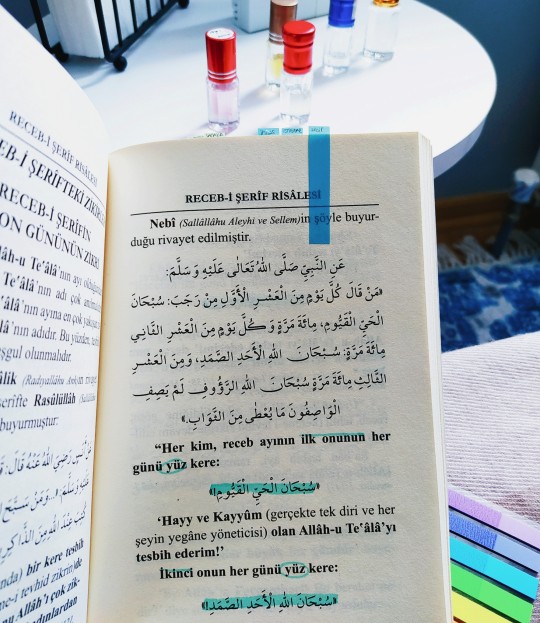 RECEB-İ ŞERİF RİSÂLESİ
EB-İ ŞERİFTEKİ ZİKİRL
RECEB-İ ŞERİFİN
ON GÜNÜNÜN ZİKRİ
lâh-u Te'âlâ'nın ayı olduğu
Te'âlâ'nın adı çok anılmalı
âlâ'nın ayıma en çok yakışan
lâ'nın adıdır. Bu yüzden, tari
eşgul olunmalıdır.
âlik (Radıyallâhu Anh)
şerifte Rasûlüllâh (Sallâllâhu
buyurmuştur:
عَنْ أَنَسٍ رَضِيَ اللهُ عَنْهُ قَالَ: قَا
عَلَيْهِ وَسَلَّمَ:
كَتَبَ عِنْدَ اللهِ مِنَ الذَّاكِرِي
bir kere tesbih
ne-i tevhid zikrin)de
nu Allâh'ı çok zik-
adınlardan
RECEB-İ ŞERİF RİSÂLESİ
Nebî (Sallâllâhu Aleyhi ve Sellem)in şöyle buyur-
duğu rivayet edilmiştir.
عَنِ النَّبِيِّ صَلَّى اللهُ تَعَالَى عَلَيْهِ وَسَلَّمَ:
«مَنْ قَالَ كُلَّ يَوْمٍ مِنَ الْعَشْرِ الْأَوَّلِ مِنْ رَجَبَ: سُبْحَانَ
الْحَيِّ الْقَيُّومِ، مِائَةَ مَرَّةٍ وَكُلَّ يَوْمٍ مِنَ الْعَشْرِ الثَّانِي
مِائَةَ مَرَّةٍ: سُبْحَانَ اللهِ الْأَحَدِ الصَّمَدِ، وَمِنَ الْعَشْرِ
الثَّالِثِ مِائَةَ مَرَّةٍ سُبْحَانَ اللهِ الرَّؤُوفِ لَمْ يَصِفِ
الْوَاصِفُونَ مَا يُعْطَى مِنَ الثَّوَابِ.»
“Her kim, receb ayının ilk onunun her
günü yüz kere:
«سُبْحَانَ الْحَيِّ الْقَيُّومِ!»
‘Hayy ve Kayyûm (gerçekte tek diri ve her
şeyin yegâne yöneticisi) olan Allâh-u Te'âlâ'yı
tesbih ederim!’
İkinci onun her günü yüz kere:
«سُبْحَانَ اللهِ الْأَحَدِ الصَّمَدِ!»